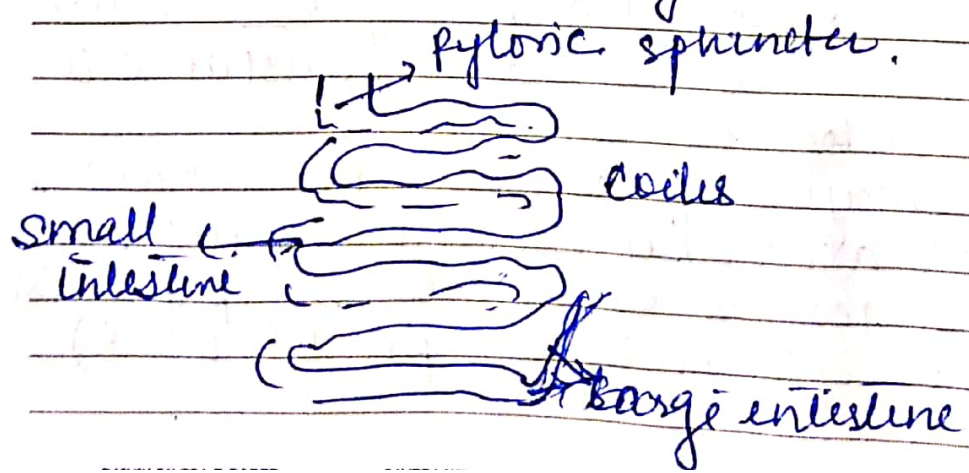 Pyloric sphincter.
coiles
small
intestine
intestine